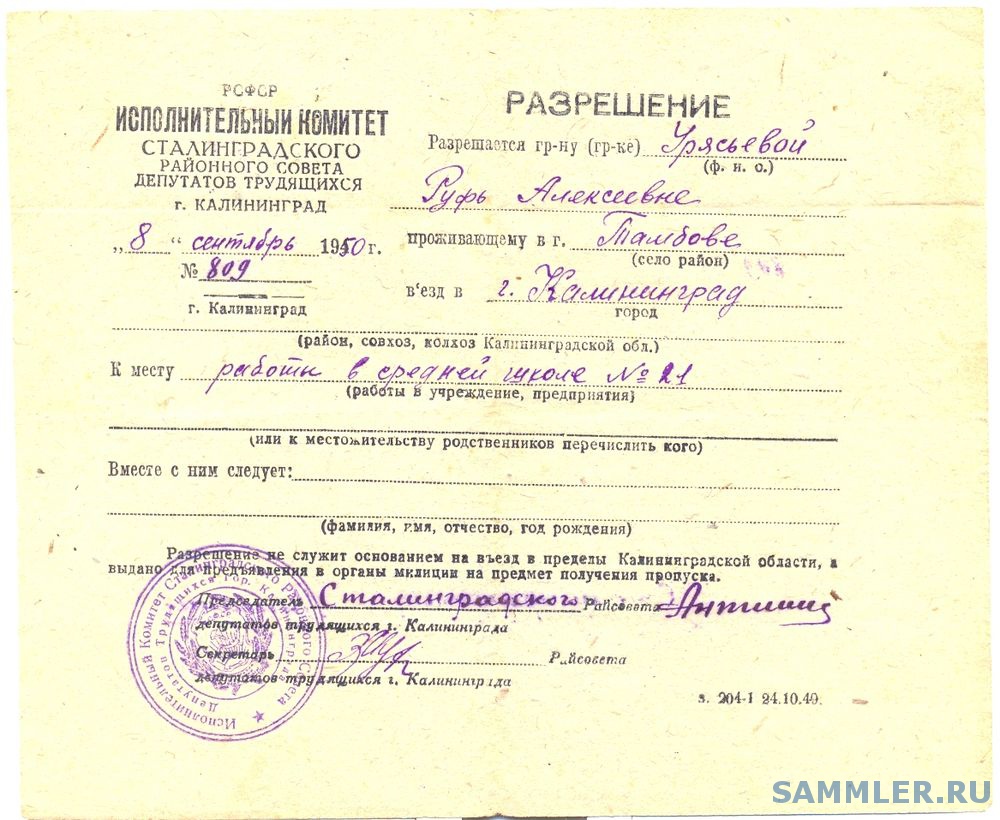 РСФСР
ИСПОЛНИТЕЛЬНЫЙ КОМИТЕТ
СТАЛИНГРАДСКОГО
РАЙОННОГО СОВЕТА
ДЕПУТАТОВ ТРУДЯЩИХСЯ
г. КАЛИНИНГРАД
„8" сентябрь 1950 г.
№ 809
г. Калининград
РАЗРЕШЕНИЕ
Разрешается гр-ну (гр-ке) Урясьевой
(ф. и. о.)
Руфь Алексеевне
проживающему в г. Тамбове
(село район)
в'езд в г. Калининград
город
(район, совхоз, колхоз Калининградской обл.)
К месту работы в средней школе № 21
(работы в учреждение, предприятия)
(или к местожительству родственников перечислить кого)
Вместе с ним следует:
(фамилия, имя, отчество, год рождения)
Разрешение не служит основанием на въезд в пределы Калининградской области, а
выдано для предъявления в органы милиции на предмет получения пропуска.
Председатель Сталинградского Райсовета
депутатов трудящихся г. Калининграда
Секретарь Райсовета
депутатов трудящихся г. Калининграда
з. 204-1 24.10.49.
Исполнительный Комитет Сталинградского Районного Совета
Депутатов Трудящихся гор. Калининграда
SAMMLER.RU